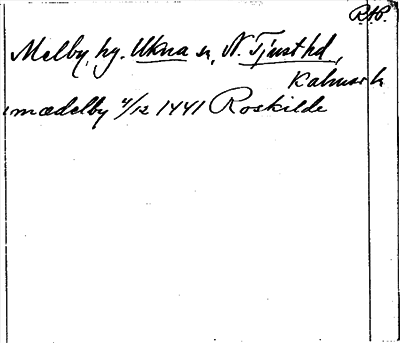 RAP.
Melby, hg. Ukna sn, N. Tjust hd,
Kalmar l
mædelby 4/12 1441 Roskilde